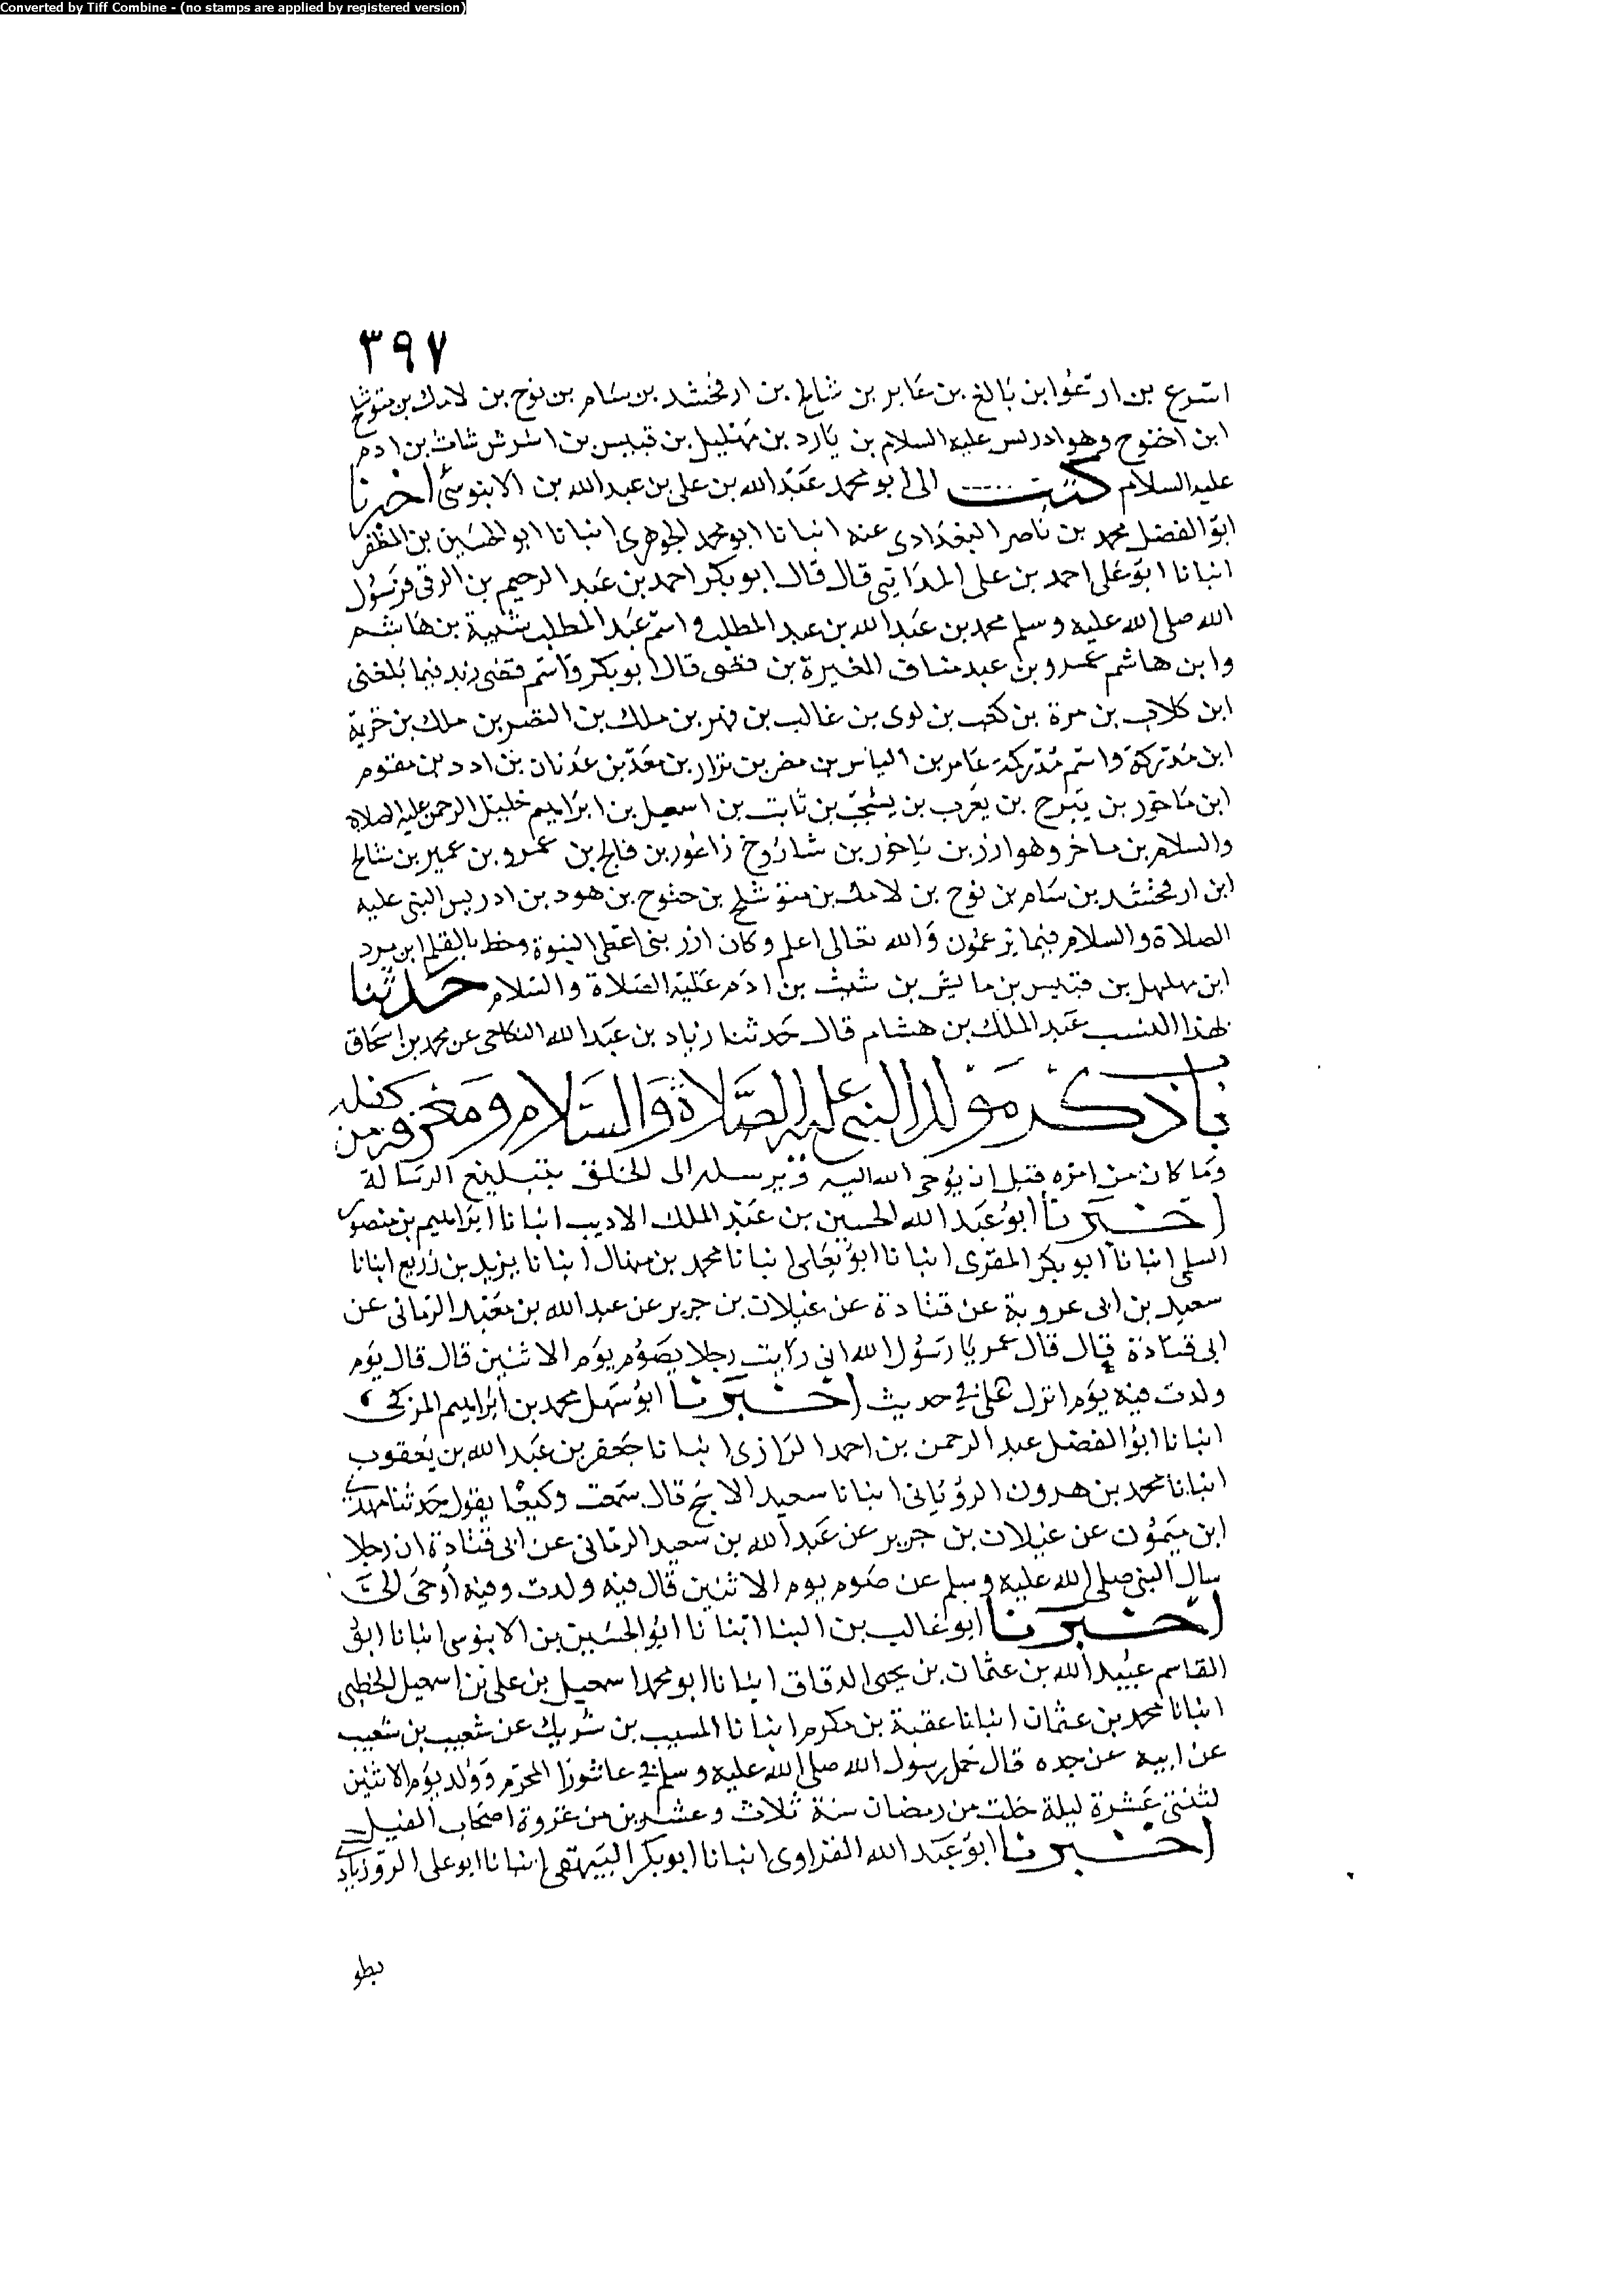 Converted by Tiff Combine - (no stamps are applied by registered version)
٣٩٧
اسرع بن ارعوا بن بالغ بن عابر بن شالخ بن ارفخشد بن سام بن نوح بن لامك بن متوشلخ
ابن اخنوح وهو ادريس عليه السلام بن يارد بن مهليل بن قينين بن انوش شاث بن ادم
عليه السلام كتب الى ابو محمد عبد الله بن على بن عبد الله بن الابنوسى اخبرنا
ابو الفضل محمد بن ناصر البغدادى عنه انبانا ابو محمد الجوهرى انبانا ابو الحسين بن المظفر
انبانا ابو على احمد بن على المداينى قال قال ابو بكر احمد بن عبد الرحيم بن البرقى فرسول
الله صلى الله عليه وسلم محمد بن عبد الله بن عبد المطلب واسم عبد المطلب شيبة بن هاشم
وابن هاشم عمرو بن عبد مناف المغيرة بن قصى قال ابو بكر واسم قصى زيد فيما بلغنى
ابن كلاب بن مرة بن كعب بن لوى بن غالب بن فهر بن ملك بن النضر بن ملك بن خزيمة
ابن مدركة واسم مدركة عامر بن الياس بن مضر بن نزار بن معد بن عدنان بن ادد بن مقوم
ابن ناحور بن تيرح بن يعرب بن يشجب بن ثابت بن اسمعيل بن ابراهيم خليل الرحمن عليه الصلاة
والسلام بن ساخر وهو ازر بن ناخور بن شاروخ زاغور بن فالخ بن عمرو بن عمير بن شالخ
ابن ارفخشد بن سام بن نوح بن لامك بن متوشلخ بن حنوح بن هود بن ادريس النبى عليه
الصلاة والسلام فيما يزعمون والله تعالى اعلم وكان ازر بنى اعطى النبوة وخط بالقلم ابن يرد
ابن مهلهل بن قينيس بن مايش بن شيث بن ادم علية الصلاة والسلام حدثنا
بهذا النسب عبد الملك بن هشام قال حدثنا زياد بن عبد الله البكاحى عن محمد بن اسحاق
باب ذكر مولد النبى عليه الصلاة والسلام ومعرفة من كفله
وما كان من امره قبل ان يوحى الله اليه ويرسله الى الخلق بتبليغ الرسالة
اخبرنا ابو عبد الله الحسين بن عبد الملك الاديب انبانا ابراهيم بن منصور
السلمى انبانا ابو بكر المقرى انبانا ابو يعلى انبانا محمد بن منهال انبانا يزيد بن زريع انبانا
سعيد بن ابى عروبة عن قتادة عن غيلان بن جرير عن عبد الله بن معبد الزمانى عن
ابى قتادة قال قال عمر يا رسول الله انى رايت رجلا يصوم يوم الاثنين قال قال يوم
ولدت فيه يوم انزل على فى حديث اخبرنا ابو سهل محمد بن ابراهيم المزكى
انبانا ابو الفضل عبد الرحمن بن احمد الرازى انبانا جعفر بن عبد الله بن يعقوب
انبانا محمد بن هرون الرويانى انبانا سعيد الاشج قال سمعت وكيعا يقول حدثنا مهدى
ابن ميمون عن غيلان بن جرير عن عبد الله بن سعيد الزمانى عن ابى قتادة ان رجلا
سال النبى صلى الله عليه وسلم عن صوم يوم الاثنين قال فيه ولدت وفيه اوحى الى
اخبرنا ابو غالب بن البنا انبانا ابو الحسين بن الابنوسى انبانا ابو
القاسم عبيد الله بن عثمان بن يحيى الدقاق انبانا ابو محمد اسمعيل بن على بن اسمعيل الخطبى
انبانا محمد بن عثمان انبانا عقبة بن مكرم انبانا المسيب بن شريك عن شعيب بن شعيب
عن ابيه عن جده قال حمل رسول الله صلى الله عليه وسلم فى عاشورا المحرم وولد يوم الاثنين
لثنتى عشرة ليلة خلت من رمضان سنة ثلاث وعشرين من غزوة اصحاب الفيل
اخبرنا ابو عبد الله الفراوى انبانا ابو بكر البيهقى انبانا ابو على الروذبارى